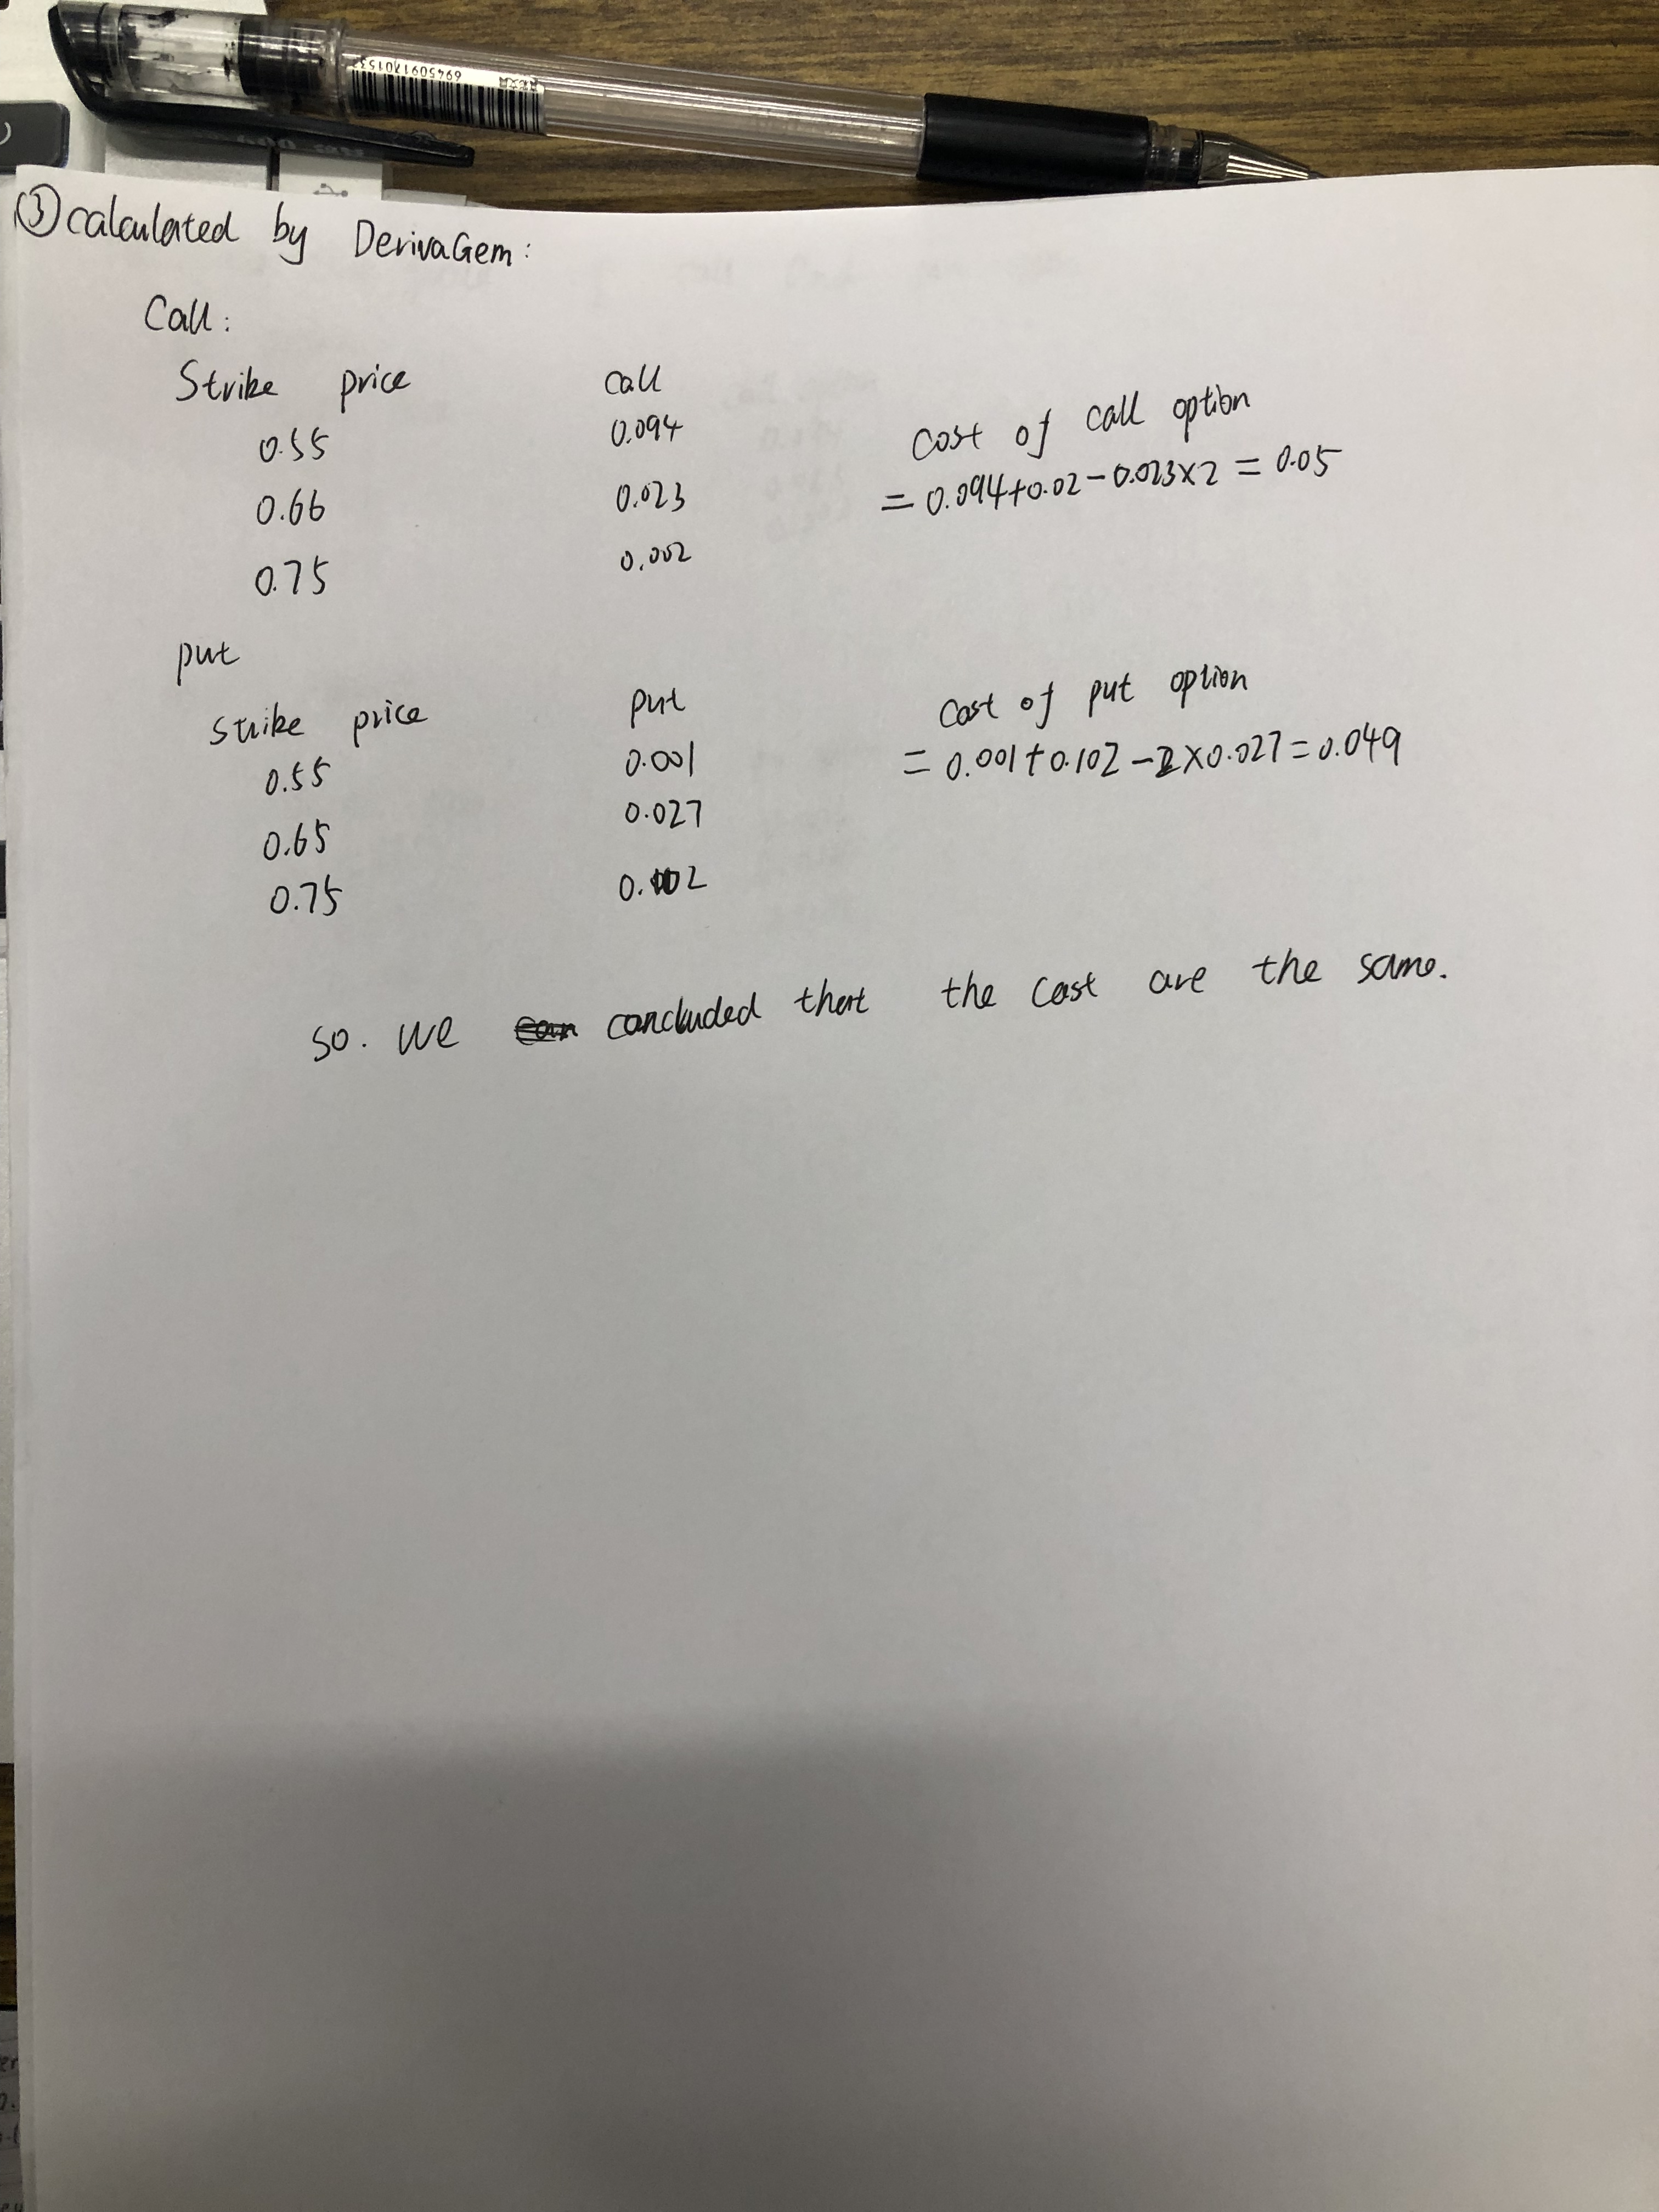 6945091701532
③ calculated by DerivaGem:
Call:
Strike price call
0.55 0.094
0.66 0.023
0.75 0.002
cost of call option
= 0.094+0.02-0.023×2 = 0.05
put
strike price put
0.55 0.001
0.65 0.027
0.75 0.102
cost of put option
= 0.001+0.102-2×0.027=0.049
so. we concluded that the cost are the same.